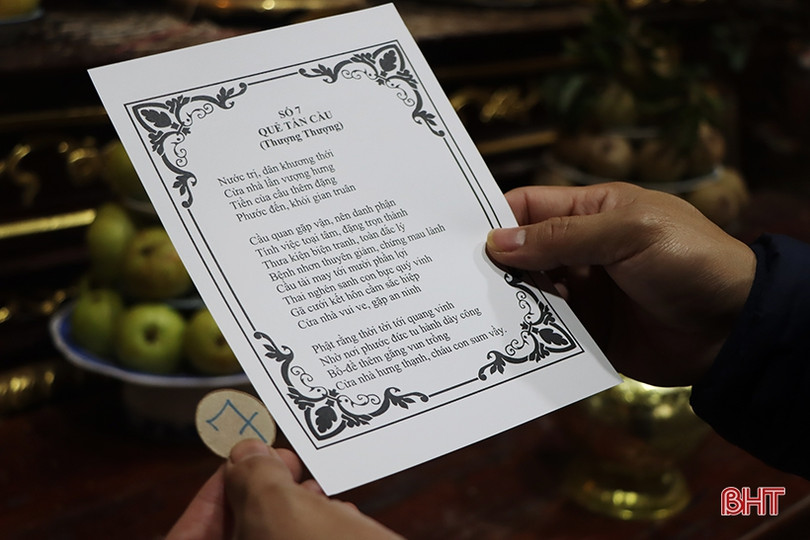 SỐ 7
QUẺ TẤN CẦU
(Thượng Thượng)
Nước trị, dân khương thới
Cửa nhà lần vượng hưng
Tiền của cầu thêm đặng
Phước đến, khỏi gian truân
Cầu quan gặp vận, nên danh phận
Tính việc toại tâm, đặng trọn thành
Thưa kiện biện tranh, toàn đắc lý
Bệnh nhơn thuyên giảm, chứng mau lành
Cầu tài may tới mười phần lợi
Thai nghén sanh con bực quý vinh
Gã cưới kết hôn cầm sắc hiệp
Cửa nhà vui ve, gặp an ninh
Phật rằng thời tới tới quang vinh
Nhờ nơi phước đức tu hành dầy công
Bồ-đề thêm gắng vun trồng
Cửa nhà hưng thạnh, cháu con sum vầy.
7
BHT